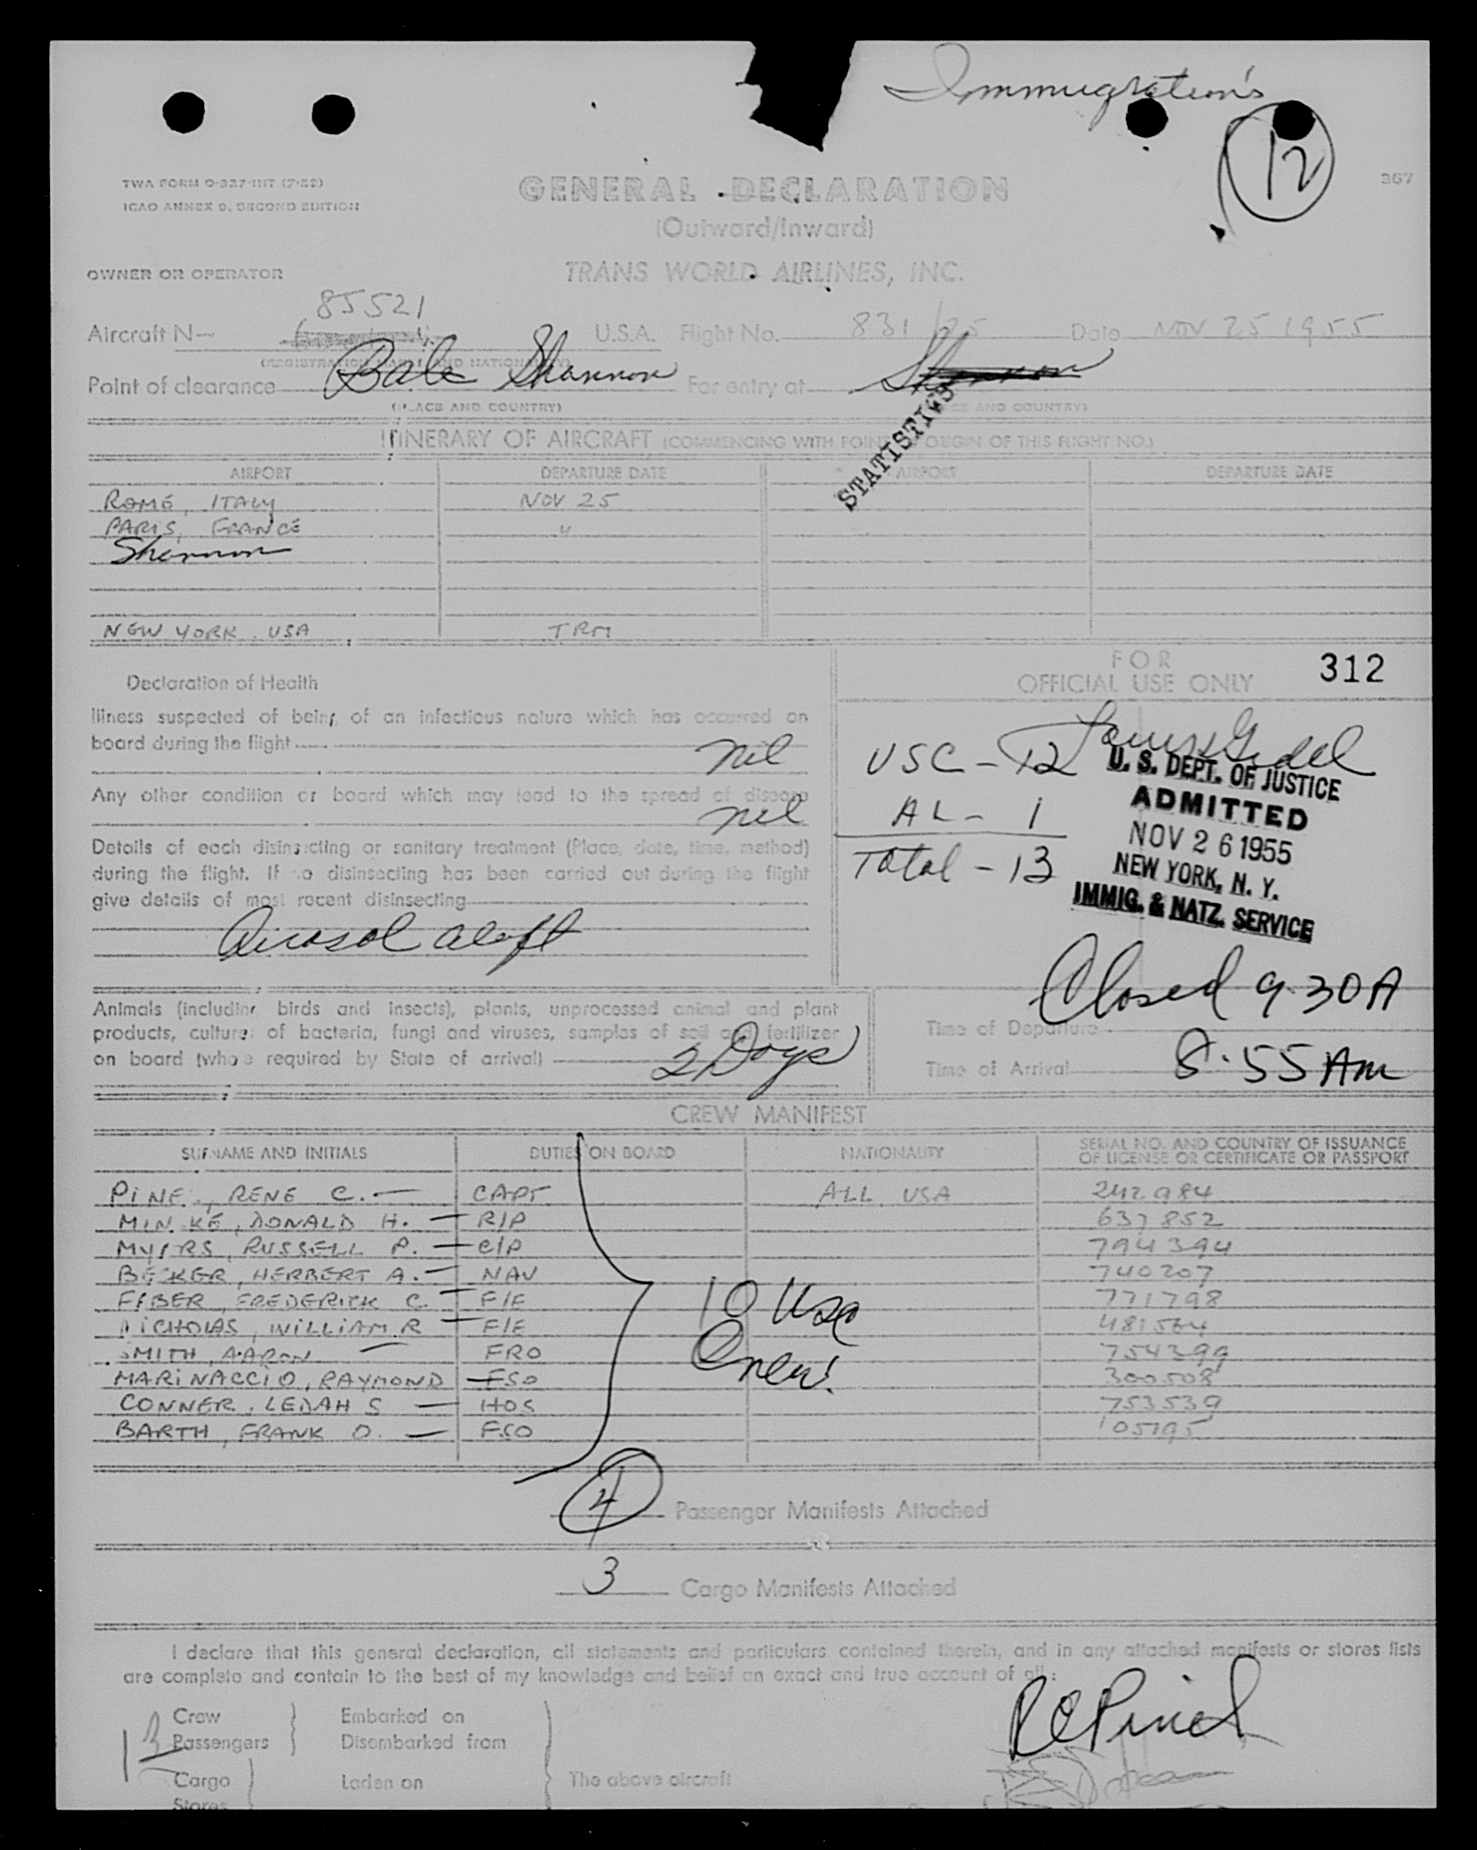 Immigration's
12
TWA FORM O-327-INT (7-52)
ICAO ANNEX 9, SECOND EDITION
367
GENERAL DECLARATION
(Outward/Inward)
OWNER OR OPERATOR
TRANS WORLD AIRLINES, INC.
85521
Aircraft N— U.S.A. Flight No. 831/25 Date NOV 25 1955
(REGISTRATION MARKS AND NATIONALITY)
Point of clearance Shannon For entry at
(PLACE AND COUNTRY) (PLACE AND COUNTRY)
STATISTICS
ITINERARY OF AIRCRAFT (COMMENCING WITH POINT OF ORIGIN OF THIS FLIGHT NO.)
AIRPORT DEPARTURE DATE AIRPORT DEPARTURE DATE
ROME, ITALY NOV 25
PARIS, FRANCE "
Shannon
NEW YORK, USA TRM
FOR
OFFICIAL USE ONLY
312
Declaration of Health
Illness suspected of being of an infectious nature which has occurred on
board during the flight nil
Any other condition on board which may lead to the spread of disease
nil
Details of each disinsecting or sanitary treatment (Place, date, time, method)
during the flight. If no disinsecting has been carried out during the flight
give details of most recent disinsecting
Airosol aloft
USC - 12
AL - 1
Total - 13
U. S. DEPT. OF JUSTICE
ADMITTED
NOV 26 1955
NEW YORK, N. Y.
IMMIG. & NATZ. SERVICE
Animals (including birds and insects), plants, unprocessed animal and plant
products, cultures of bacteria, fungi and viruses, samples of soil and fertilizer
on board (where required by State of arrival) 2 Dogs
Closed 9.30A
Time of Departure
Time of Arrival 8:55 AM
CREW MANIFEST
SURNAME AND INITIALS DUTIES ON BOARD NATIONALITY SERIAL NO. AND COUNTRY OF ISSUANCE
OF LICENSE OR CERTIFICATE OR PASSPORT
PINE, RENE C. — CAPT ALL USA 242984
MINKE, DONALD H. — R/P 637852
MYERS, RUSSELL P. — C/P 794394
BECKER, HERBERT A. — NAV 740207
FABER, FREDERICK C — F/E 771798
NICHOLAS, WILLIAM R — F/E 481564
SMITH, AARON — FRO 754399
MARINACCIO, RAYMOND — FSO 300508
CONNER, LEDAH S — HOS 753539
BARTH, FRANK O. — FSO 105195
10 Usc
Crew
4 Passenger Manifests Attached
3 Cargo Manifests Attached
I declare that this general declaration, all statements and particulars contained therein, and in any attached manifests or stores lists
are complete and contain to the best of my knowledge and belief an exact and true account of all:
Crew Embarked on
13 Passengers Disembarked from
Cargo Laden on The above aircraft
Stores